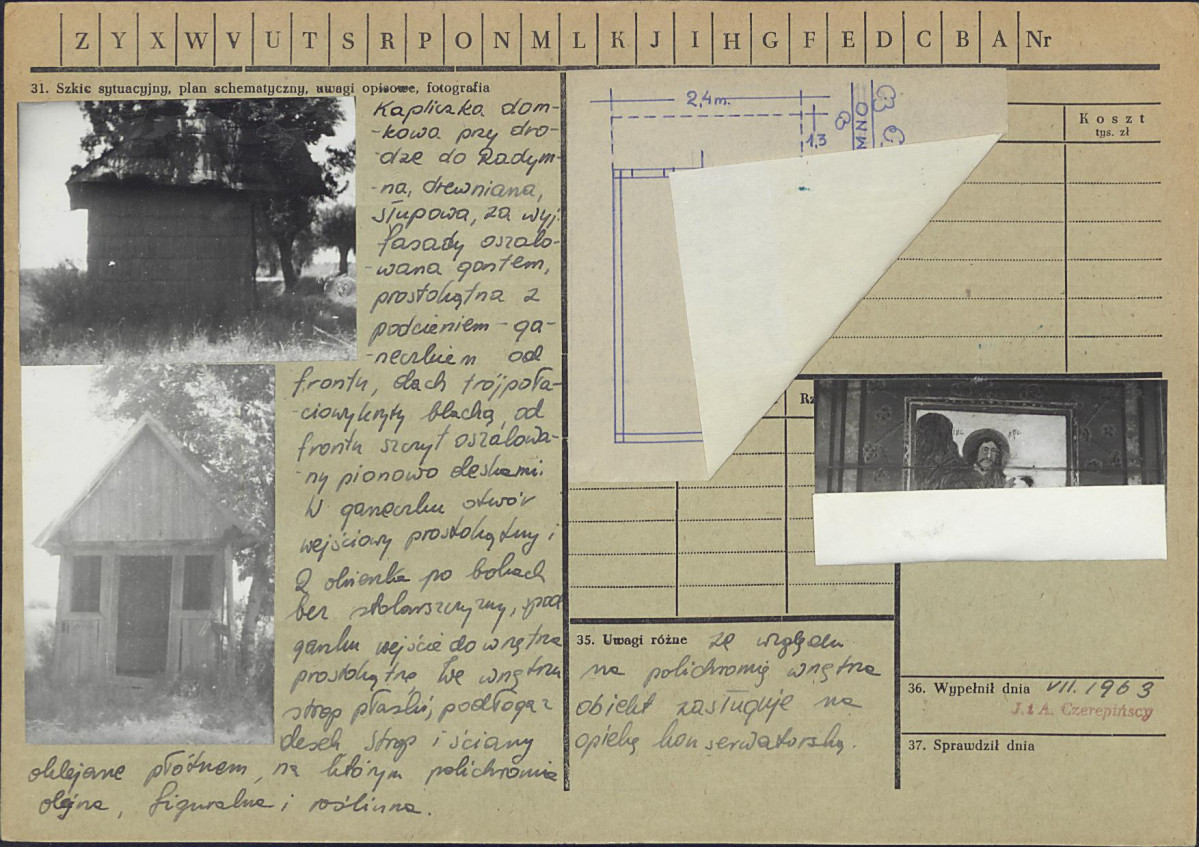 Z Y X W V U T S R P O N M L K J I H G F E D C B A Nr
31. Szkic sytuacyjny, plan schematyczny, uwagi opisowe, fotografia
Kapliczka dom-
-kowa przy dro-
-dze do Radym-
-na, drewniana,
słupowa, za wyj.
fasady oszalo-
-wana gontem,
prostokątna z
podcieniem-ga-
-neczkiem od
frontu, dach trójpoła-
-ciowy kryty blachą, od
frontu szczyt oszalowa-
-ny pionowo deskami.
W ganeczku otwór
wejściowy prostokątny i
2 okienka po bokach
bez stolarszczyzny, spod
ganku wejście do wnętrza
prostokątne. We wnętrzu
strop płaski, podłoga z
desek. Strop i ściany
oklejane płótnem, na którym polichromia
olejna, figuralna i roślinna.
2,4m.
1,3
MNO
Koszt
tys. zł
Rz
35. Uwagi różne ze względu
na polichromię wnętrza
obiekt zasługuje na
opiekę konserwatorską.
36. Wypełnił dnia VII. 1963
J. i A. Czerepińscy
37. Sprawdził dnia